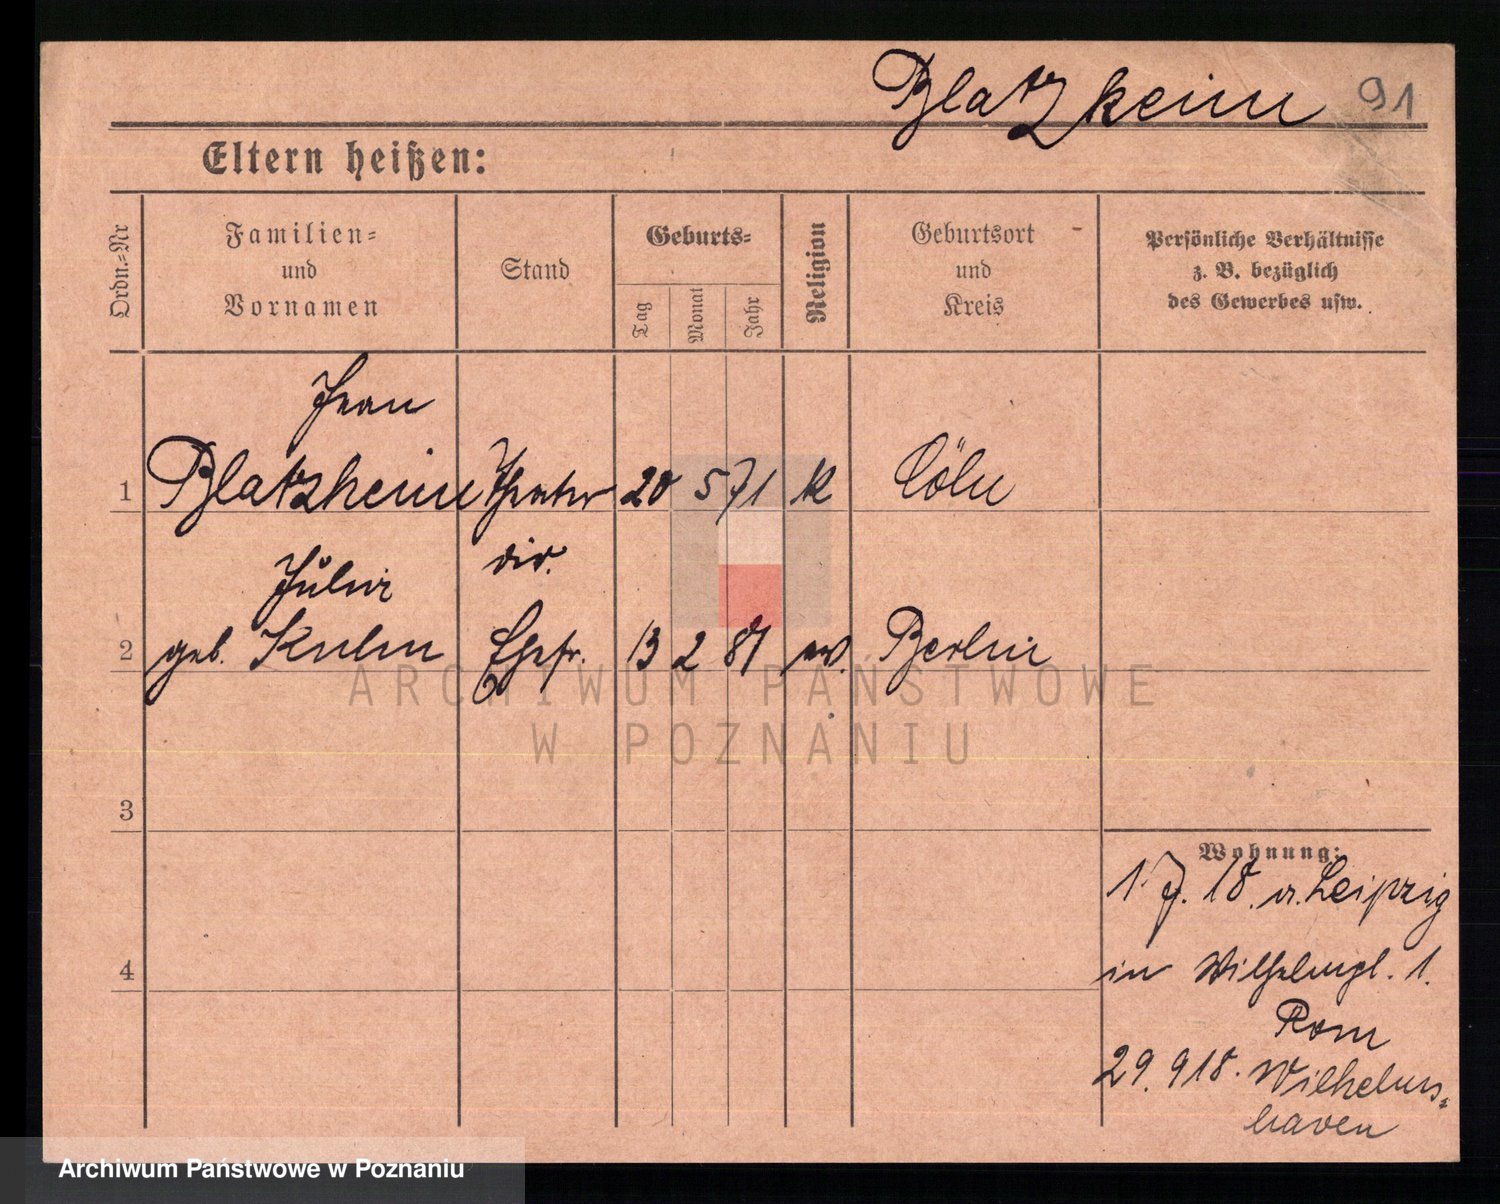 Blatzheim 91
Eltern heißen:
Ordn.-Nr
Familien-
und
Vornamen
Stand
Geburts-
Tag
Monat
Jahr
Religion
Geburtsort
und
Kreis
Persönliche Verhältnisse
z. B. bezüglich
des Gewerbes usw.
Jean
1 Blatzheim Theater 20 5 71 k Cöln
dir.
Julie
2 geb. Ehefr. 13 2 81 ev. Berlin
3
4
Wohnung:
1. 7. 18. a. Leipzig
in Wilhelmpl. 1.
Rom
29. 9 18. Wilhelms-
haven
ARCHIWUM PAŃSTWOWE
W POZNANIU
Archiwum Państwowe w Poznaniu